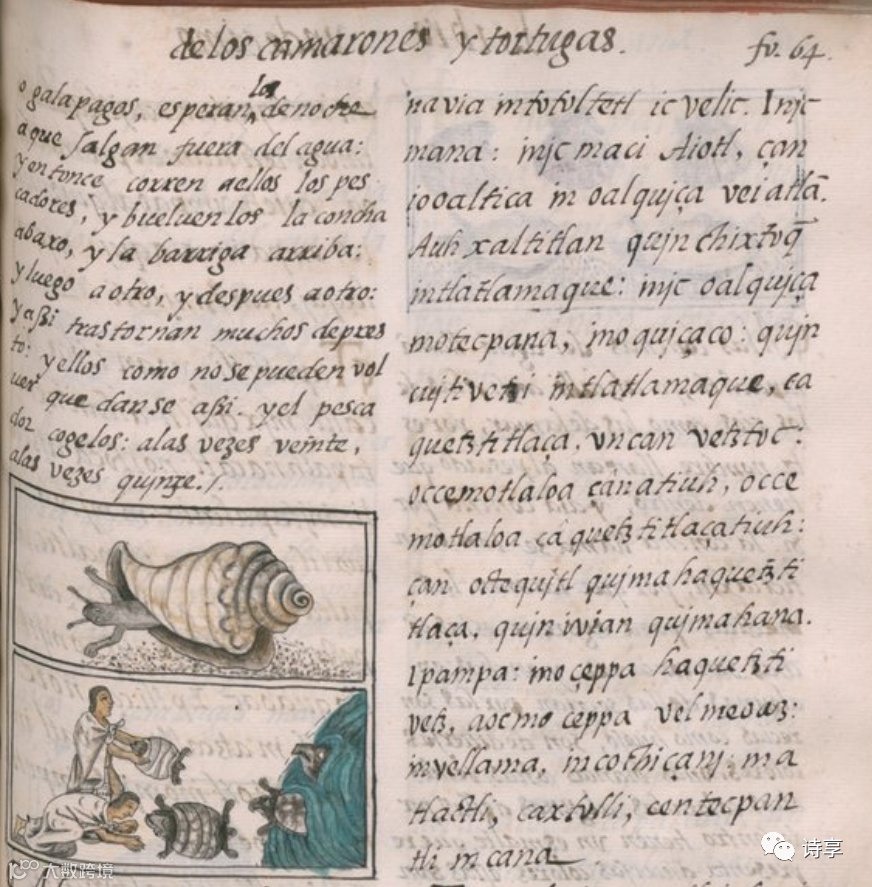 de los camarones y tortugas.
fo. 64.
o galapagos, esperan los de noche
a que salgan fuera del agua:
y entonce corren a ellos los pes
cadores, y bueluen los la concha
abaxo, y la barriga arriba:
y luego a otro, y despues a otro:
y aßi trastornan muchos de pres
to: y ellos como no se pueden vol
uer que dan se aßi. y el pesca
dor cogelos: a las vezes veinte,
a las vezes quinze./.
navia in totoltetl ic velic. Injc
mana: injc maci Aiotl, çan
iooaltica in oalquiça vei atlã.
Auh xaltitlan qujnchixtoq̃
intlatlamaque: injc oalquiça
motecpana, in oquiçaco: qujn
cujtivetzi in tlatlamaque, ça
quetztitlaça. vncan vetztoc:
occemotlaloa çanatiuh, occe
motlaloa çã quetztitlaçatiuh:
çan octequjtl qujmahaquetzti
tlaça, qujn ivian qujmahana.
Ipampa: in oçeppa haquetzti
vetz, aocmo çeppa vel meoaz:
in vellama, in cothiçanj: ma
tlactli, caxtolli, centecpan
tli in cana
诗享
大数跨境